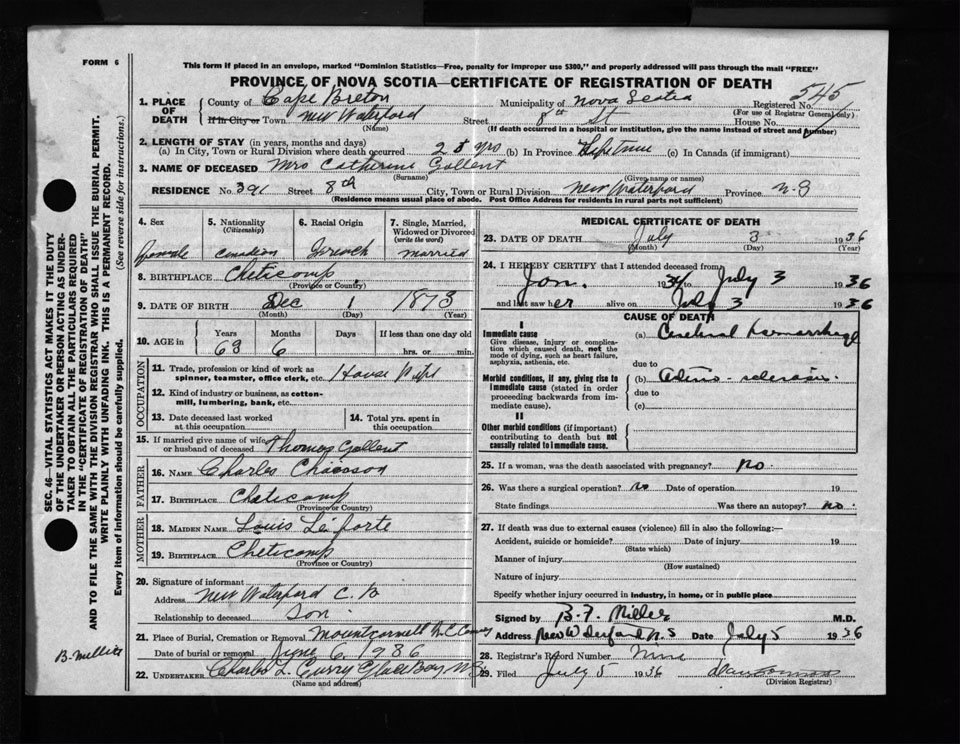 FORM 6
This form if placed in an envelope, marked "Dominion Statistics—Free, penalty for improper use $300," and properly addressed will pass through the mail "FREE"
PROVINCE OF NOVA SCOTIA—CERTIFICATE OF REGISTRATION OF DEATH
1. PLACE OF DEATH County of Cape Breton Municipality of Nova Scotia Registered No. 545
(For use of Registrar General only)
If in City or Town New Waterford Street 8th St House No.
(Name) (If death occurred in a hospital or institution, give the name instead of street and number)
2. LENGTH OF STAY (in years, months and days)
(a) In City, Town or Rural Division where death occurred 28 yrs (b) In Province Life time (c) In Canada (if immigrant)
3. NAME OF DECEASED Mrs Catherine Gallent
(Surname) (Given name or names)
RESIDENCE No. 391 Street 8th City, Town or Rural Division New Waterford Province N-S
(Residence means usual place of abode. Post Office Address for residents in rural parts not sufficient)
4. Sex 5. Nationality (Citizenship) 6. Racial Origin 7. Single, Married, Widowed or Divorced (write the word)
female Canadian French married
8. BIRTHPLACE Cheticamp
(Province or Country)
9. DATE OF BIRTH Dec 1 1873
(Month) (Day) (Year)
10. AGE in Years Months Days If less than one day old
63 6 hrs. or min.
OCCUPATION
11. Trade, profession or kind of work as spinner, teamster, office clerk, etc. House Wife
12. Kind of industry or business, as cotton-mill, lumbering, bank, etc.
13. Date deceased last worked at this occupation 14. Total yrs. spent in this occupation
15. If married give name of wife or husband of deceased Thomas Gallent
FATHER
16. NAME Charles Chaosson
17. BIRTHPLACE Cheticamp
(Province or Country)
MOTHER
18. MAIDEN NAME Louis Le forte
19. BIRTHPLACE Cheticamp
(Province or Country)
20. Signature of informant
Address New Waterford C. B
Relationship to deceased Son
21. Place of Burial, Cremation or Removal Mountcarmell R.C.
Date of burial or removal June 6, 1936
22. UNDERTAKER Charles L. Curry Glace Bay N.S.
(Name and address)
MEDICAL CERTIFICATE OF DEATH
23. DATE OF DEATH July 3 1936
(Month) (Day) (Year)
24. I HEREBY CERTIFY that I attended deceased from
Jan. 1934 to July 3 1936
and last saw her alive on July 3 1936
CAUSE OF DEATH
I
Immediate cause
Give disease, injury or complication which caused death, not the mode of dying, such as heart failure, asphyxia, asthenia, etc.
(a) Cerebral hemorrhage
due to
Morbid conditions, if any, giving rise to immediate cause (stated in order proceeding backwards from immediate cause).
(b)
due to
(c)
II
Other morbid conditions (if important) contributing to death but not causally related to immediate cause.
25. If a woman, was the death associated with pregnancy? no.
26. Was there a surgical operation? no Date of operation 19
State findings Was there an autopsy? no.
27. If death was due to external causes (violence) fill in also the following:—
Accident, suicide or homicide? Date of injury 19
(State which)
Manner of injury
(How sustained)
Nature of injury
Specify whether injury occurred in industry, in home, or in public place
Signed by B. F. Miller M.D.
Address New Waterford N.S Date July 5 1936
28. Registrar's Record Number
29. Filed July 5 1936
(Division Registrar)
SEC. 46—VITAL STATISTICS ACT MAKES IT THE DUTY OF THE UNDERTAKER OR PERSON ACTING AS UNDERTAKER TO OBTAIN ALL THE PARTICULARS REQUIRED IN THE "CERTIFICATE OF REGISTRATION OF DEATH" AND TO FILE THE SAME WITH THE DIVISION REGISTRAR WHO SHALL ISSUE THE BURIAL PERMIT.
WRITE PLAINLY WITH UNFADING INK. THIS IS A PERMANENT RECORD.
Every item of information should be carefully supplied. (See reverse side for instructions.)